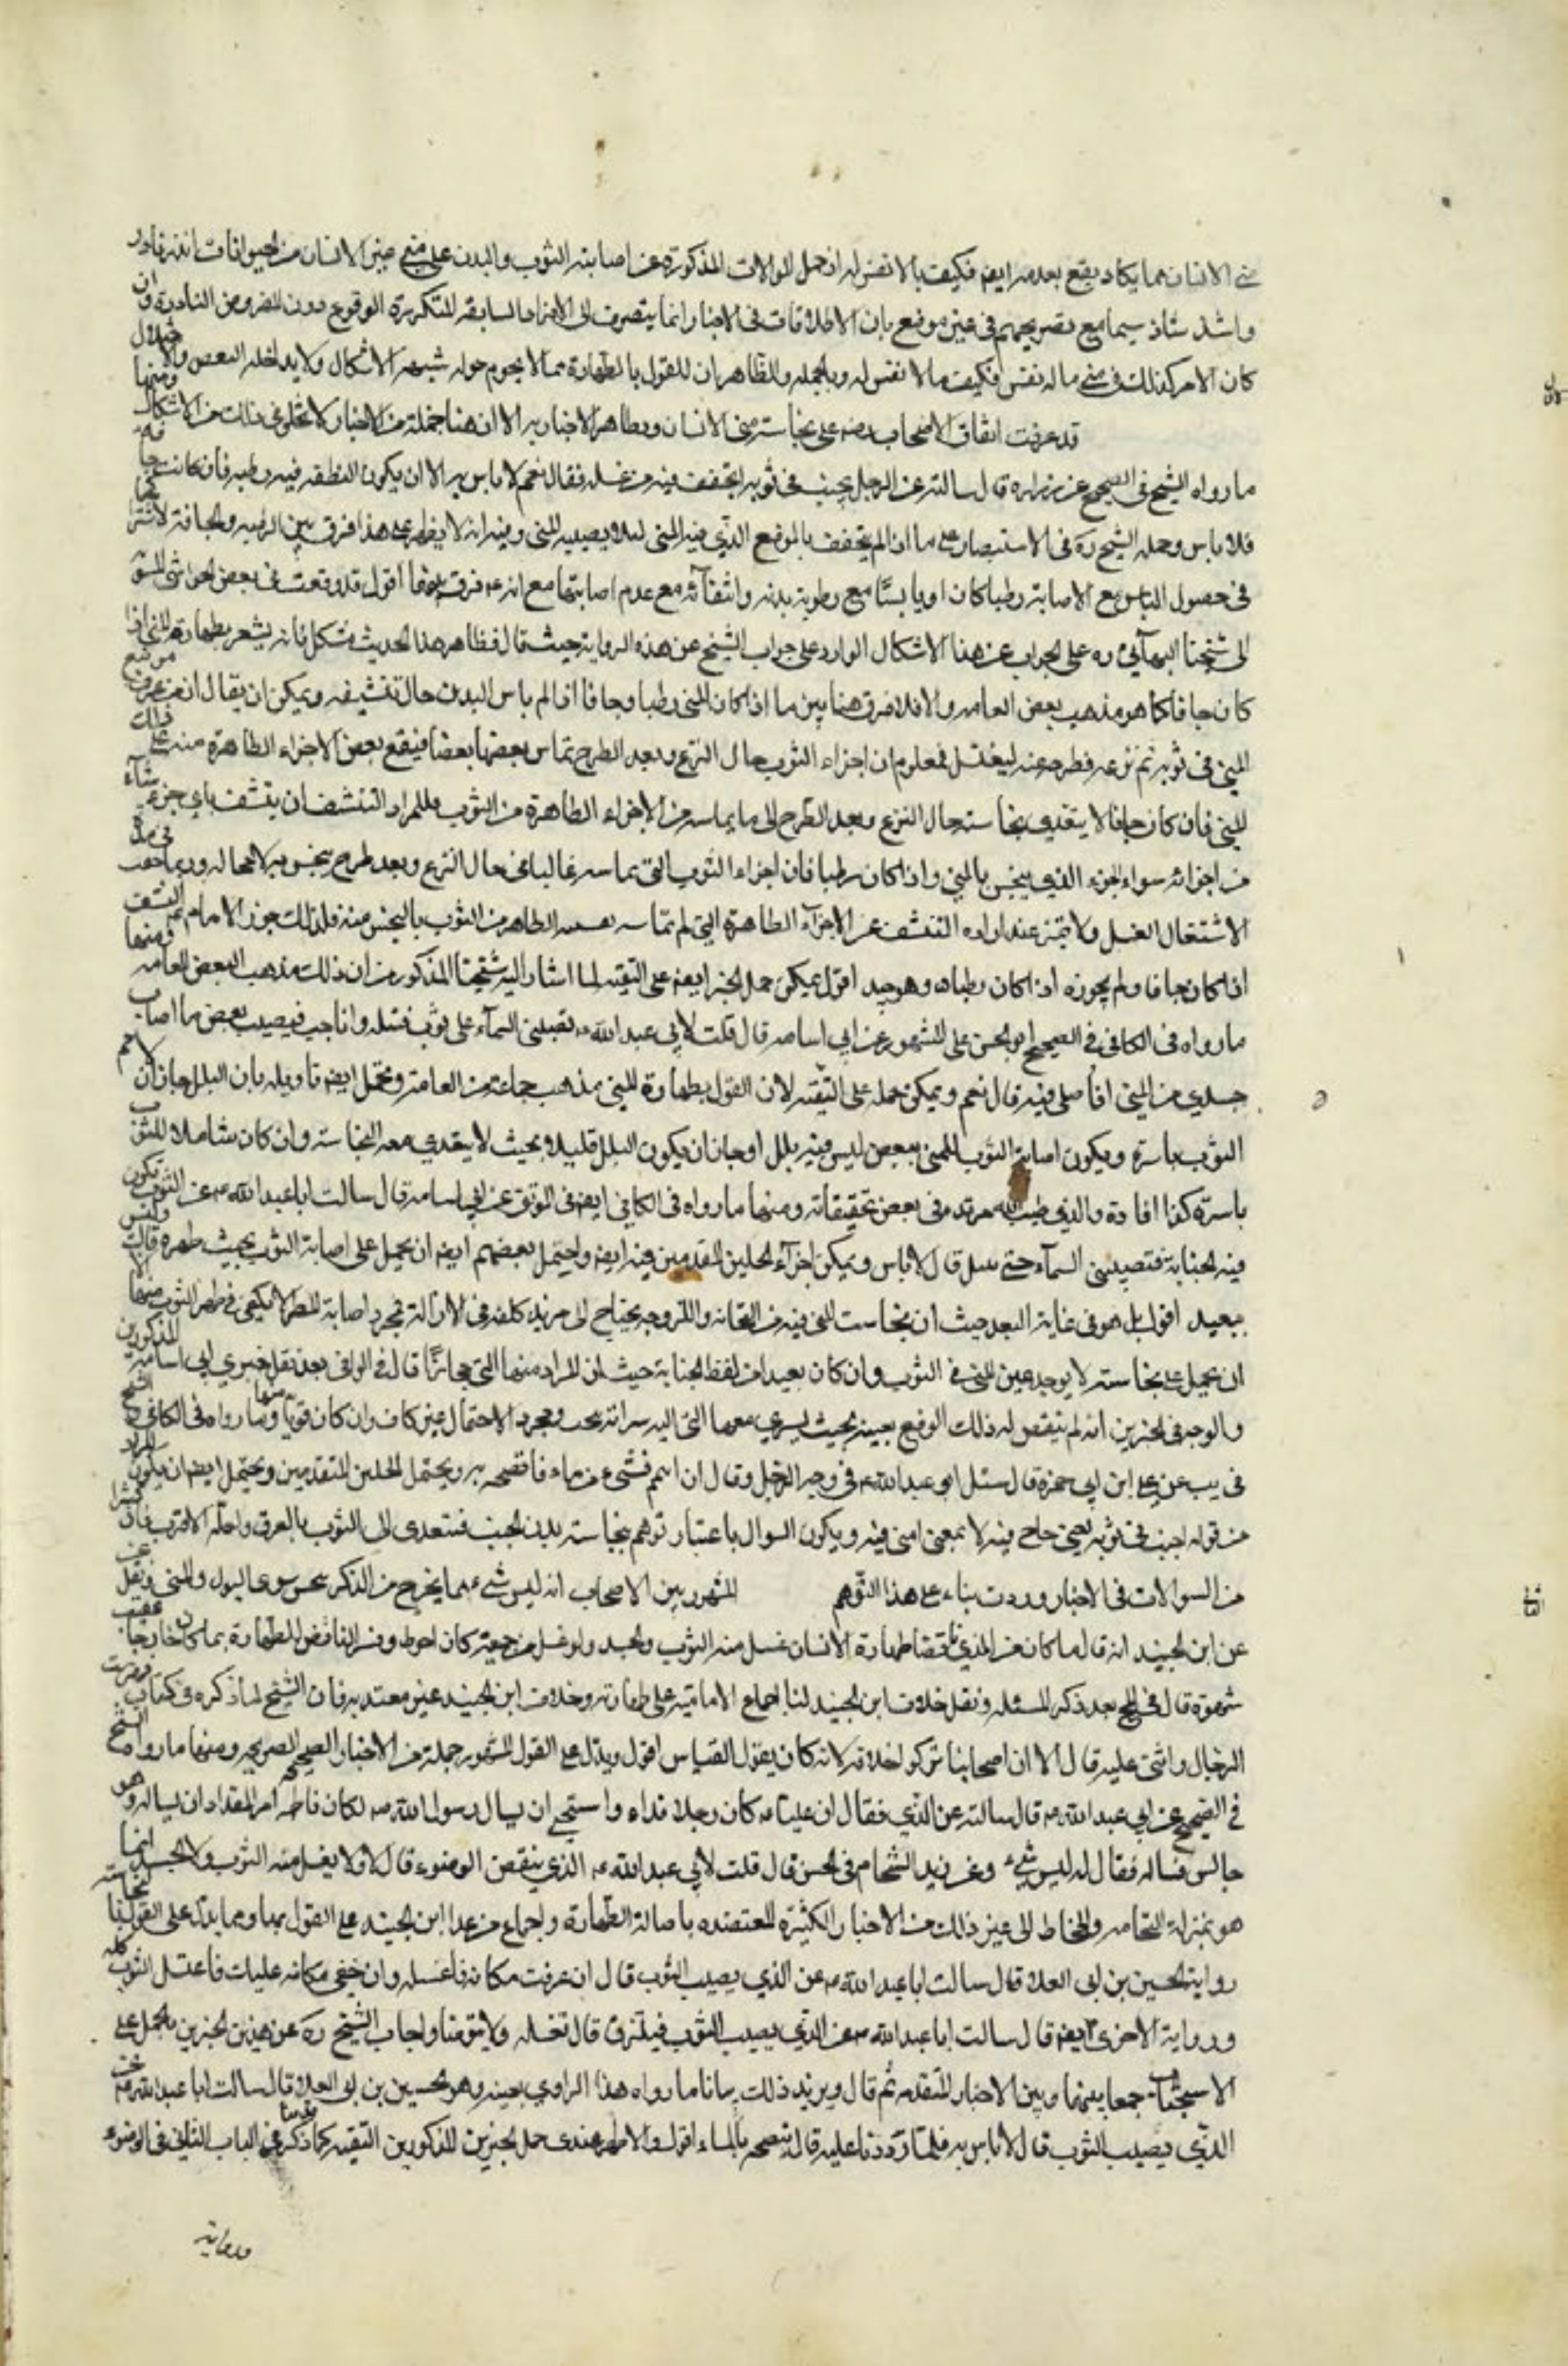 منى الانسان مما يكاد يقع بعد مدايم فكيف بالا نفس له اذ حمل السوالات المذكورة عن اصابته الثوب والبدن على منى غير الانسان من الحيوانات نادر
واشد شاذ سيما مع تصريحهم في غير موضع بان الاطلاقات في الاخبار انما ينصرف الى الافراد السابقه المتكررة الوقوع دون الفروض النادرة وان
كان الامر كذلك في منى ما له نفس فكيف ما لا نفس له وبالجمله فالظاهر ان القول بالطهارة مما لا يحوم حوله شبهة الاشكال ولا يداخله النقص والاختلال
قد عرفت اتفاق الاصحاب رض على نجاسة منى الانسان وتظاهر الاخبار به الا ان هنا جملة من الاخبار لا تخلو في ذلك من الاشكال ومنها
ما رواه الشيخ في الصحيح عن زرارة قال سالته عن الرجل يجنب في ثوبه ايتجفف فيه من غسله فقال نعم لا باس به الا ان يكون النطفه فيه رطبه فان كانت جافة
فلا باس وحمله الشيخ ره في الاستبصار على ما اذا لم يتجفف بالموضع الذي فيه المنى لئلا يصيبه المنى وفيه انه لا يظهر على هذا فرق بين الرطبه والجافة
في حصول الباس مع الاصابة رطبا كان او يابسا مع رطوبة بدنه وانتفائه مع عدم اصابتها مع انه ع فرق بينهما اقول قد وقعت في بعض الحواشى المنسوبة
الى شيخنا البهائي ره على الجواب عن هذا الاشكال الوارد على جواب الشيخ عن هذه الرواية حيث قال فظاهر هذا الحديث مشكل فانه يشعر بطهارة المنى اذا
كان جافا كما هو مذهب بعض العامه والا فلا فرق هنا بين ما اذا كان المنى رطبا وجافا اذا لم يماس البدن حال تنشيفه ويمكن ان يقال ان من عرف موضع
المنى في ثوبه ثم نزعه فطرحه عنه ليغتسل فمعلوم ان اجزاء الثوب حال النزع وبعد الطرح تماس بعضها بعضا فيقع بعض الاجزاء الطاهرة منه على ذلك
المنى فان كان جافا لا يتعدى نجاسته حال النزع وبعد الطرح الى ما يماسه من الاجزاء الطاهرة من الثوب فللمراد التنشف ان ينشف باي جزء شاء
من اجزائه سواء الجزء الذي ينجس بالمنى واذا كان رطبا فان اجزاء الثوب التي تماسه غالبا في حال النزع وبعد طرحه ينجس به لا محاله وربما جف في مدة
الاشتغال بالغسل ولا تميز عند ارادة التنشف عن الاجزاء الطاهرة التي لم تماسه الطاهر من الثوب بالنجس منه فلذلك جوز الامام ع التنشف
اذا كان جافا ولم يجوزه اذا كان رطبا وهو جيد اقول يمكن حمل الخبر ايضا على التقية لما اشار اليه شيخنا المذكور من ان ذلك مذهب البعض العامه ومنها
ما رواه في الكافي في الصحيح او الحسن على المشهور عن ابي اسامه قال قلت لابي عبد الله ع تصيبني السماء على ثوب فتبله وانا جنب فيصيب بعض ما اصاب
جسدي من المنى افاصلى فيه قال نعم ويمكن حمله على التقيه لان القول بطهارة المنى مذهب جماعة من العامة ويحتمل ايضا تاويله بان البلل جاز ان لا يعم
الثوب باسره ويكون اصابة الثوب للمنى ببعض ليس فيه بلل او جاز ان يكون البلل قليلا بحيث لا يتعدى معه النجاسة وان كان شاملا للثوب
باسره كذا افاده والدي طيب الله مرقده في بعض تحقيقاته ومنها ما رواه في الكافي ايضا في الموثق عن ابي اسامه قال سالت ابا عبد الله ع عن الثوب تكون
فيه الجنابة فتصيبني السماء حتى يبتل قال لا باس ويمكن اجزاء المحملين المتقدمين فيه ايضا واحتمل بعضهم ايضا ان يحمل على اصابة الثوب بحيث طهره
ببعيد اقول بل هو في غاية البعد حيث ان نجاسة المنى فيه من الثخانة واللزوجه يحتاج الى مزيد كلفه في الازالة فمجرد اصابة المطر لا يكفى في طهر الثوب منها
ان يحمل على نجاسة لا يوجد عين المنى في الثوب وان كان بعيدا من لفظ الجنابة حيث ان المراد منها المنى مجازا قال في الوافى بعد نقل خبري ابي اسامة المذكورين
والوجه في الخبرين انه لم يتيقن له ذلك الوقع بعينه بحيث يسري معها المنى اليه سراية ومجرد الاحتمال غير كاف وان كان قويا ومنها ما رواه في الكافي والشيخ
في يب عن على ابن ابي حمزة قال سئل ابو عبد الله ع في وجه الرجل وقال ان انهم فشى من ماء فانضحه به ويحتمل المحملين المتقدمين ويحتمل ايضا ان يكون المراد
من قوله اجنب في ثوبه يعني جامع فيه لا بمعنى امنى فيه ويكون السوال باعتبار توهم نجاسة بدن الجنب فتتعدى الى الثوب بالعرق ولعله الاقرب فان
من السوالات في الاخبار وردت بناء على هذا التوهم المشهور بين الاصحاب انه ليس شيء مما يخرج من الذكر ينجس سوى البول والمنى ونقل
عن ابن الجنيد انه قال ما كان من المذي ناقضا طهارة الانسان غسل منه الثوب والجسد ولو غسل من جميعه كان احوط وفسر الناقض للطهارة بما كان خارجا عقيب
شهوة قال في المخ بعد ذكر المسئله ونقل خلاف ابن الجنيد لنا اجماع الامامية على طهارته وخلاف ابن الجنيد غير معتد به فان الشيخ لما ذكره في كتاب فهرست
الرجال واثنى عليه قال الا ان اصحابنا تركوا خلافه لانه كان يقول القياس اقول ويدل على القول المشهور جملة من الاخبار الصحيحة الصريحه ومنها ما رواه الشيخ
في الصحيح عن ابي عبد الله ع قال سالته عن المذي فقال ان عليا ع كان رجلا مذاء واستحيى ان يسال رسول الله ص لمكان فاطمه امر المقداد ان يساله وهو
جالس فساله فقال له ليس بشيء وعن زيد الشحام في الحسن قال قلت لابي عبد الله ع المذي ينقض الوضوء قال لا ولا يغسل منه الثوب ولا الجسد انما
هو بمنزلة النخامه والمخاط الى غير ذلك من الاخبار الكثيرة المعتضده باصالة الطهارة واجماع من عدا ابن الجنيد على القول بها ومما يدل على القول بالنجاسة
رواية الحسين بن ابى العلا قال سالت ابا عبد الله ع عن المذي يصيب الثوب قال ان عرفت مكانه فاغسله وان خفي مكانه عليك فاغسل الثوب كله
ورواية الاخرى ايضا قال سالت ابا عبد الله ع عن المذي يصيب الثوب فيلتزق قال تغسله ولا تتوضا واجاب الشيخ ره عن هذين الخبرين بالحمل على
الاستحباب جمعا بينهما وبين الاخبار المتقدمه ثم قال ويزيد ذلك بيانا ما رواه هذا الراوي بعينه وهو الحسين بن ابى العلا قال سالت ابا عبد الله ع عن
المذي يصيب الثوب قال لا باس به فلما رددنا عليه قال تنضحه بالماء اقول والاظهر عندى حمل الخبرين المذكورين التقيه كما ذكره في الباب الثانى في الوضوء
ورواية